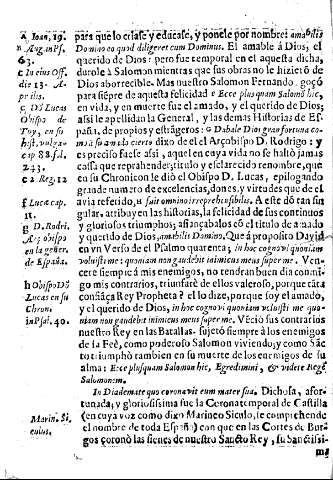 A Ioan, 19.
B Aug. in Ps.
63.
C In eius Off.
die 13. A-
prilis.
C D. Lucas
Obispo de
Tuy, en su
hist. vulgar
cap 88. fol.
243.
E 2. Reg. 12
F Luc æ cap.
11.
g D. Rodri.
Arçobispo
en la gener.
de España.
h Obispo D.
Lucas en su
Chron.
i in Psal. 40.
Marin. Si-
culus.
para que lo criasse y educase, y ponele por nombre: amabilis
Domino eo quod diligeret eum Dominus. El amable à Dios, el
querido de Dios: pero fue temporal en aquesta dicha,
durole à Salomon mientras que sus obras no le hizieron de
Dios aborrecible. Mas nuestro Salomon Fernando, goçó
para siepre de aquesta felicidad: Ecce plusquam Salomon hic,
en vida, y en muerte fue el amado, y el querido de Dios;
assi le apellidan la General, y las demas Historias de Es-
paña, de propios y estrãgeros: G Dabale Dios gran fortuna co-
mo à su amado cierto dixo de el el Arçobispo D. Rodrigo: y es
preciso fuese assi, aquel en cuya vida no se halló jamas
cossa que reprahender; titulo y esclarecido renombre, que
en su Cronicon le dió el Obispo D. Lucas, epilogando
grande numero de excelencias, dones, y virtudes que de el
avia referido, H fuit omnino irreprehensibilis. A este dõ tan sin
gular, atribuyen las historias, la felicidad de sus continuos
y gloriosos triumphos; afiançabalos cõ el titulo de amado
y querido de Dios, amabilis Domino, Que à proposito David
en vn Verso de el Psalmo quarenta; in hoc cognovi quoniam
voluisti me: quoniam non gaudebit inimicus meus super me. Ven-
cerè siempre à mis enemigos, no tendran buen dia conmi-
go mis contrarios, triunfarè de ellos valeroso, porque tãta
confiãça Rey Propheta? el lo dize, porque soy el amado,
y el querido de Dios, in hoc cognovi quoniam voluisti me quo-
niam non gaudebit inimicus meus super me. Vẽció sus contrarios
nuestro Rey en las Batallas, sujetó siempre à los enemigos
de la Feè, como poderoso Salomon viviendo; y como Sãc
to triumphò tambien en su muerte de los enemigos de su
alma: Ecce plusquam Salomon hic, Egredimini, & videte Regẽ
Salomonem.
In Diademate quo coronavit eum mater sua. Dichosa, afor-
tunada; y gloriosissima fue la Corona temporal de Castilla
(en cuya voz como dixo Marineo Siculo, se comprehende
el nombre de toda España) con que en las Cortes de Bur-
gos coronò las sienes de nuestro Sancto Rey, su Sanctissi-
ma